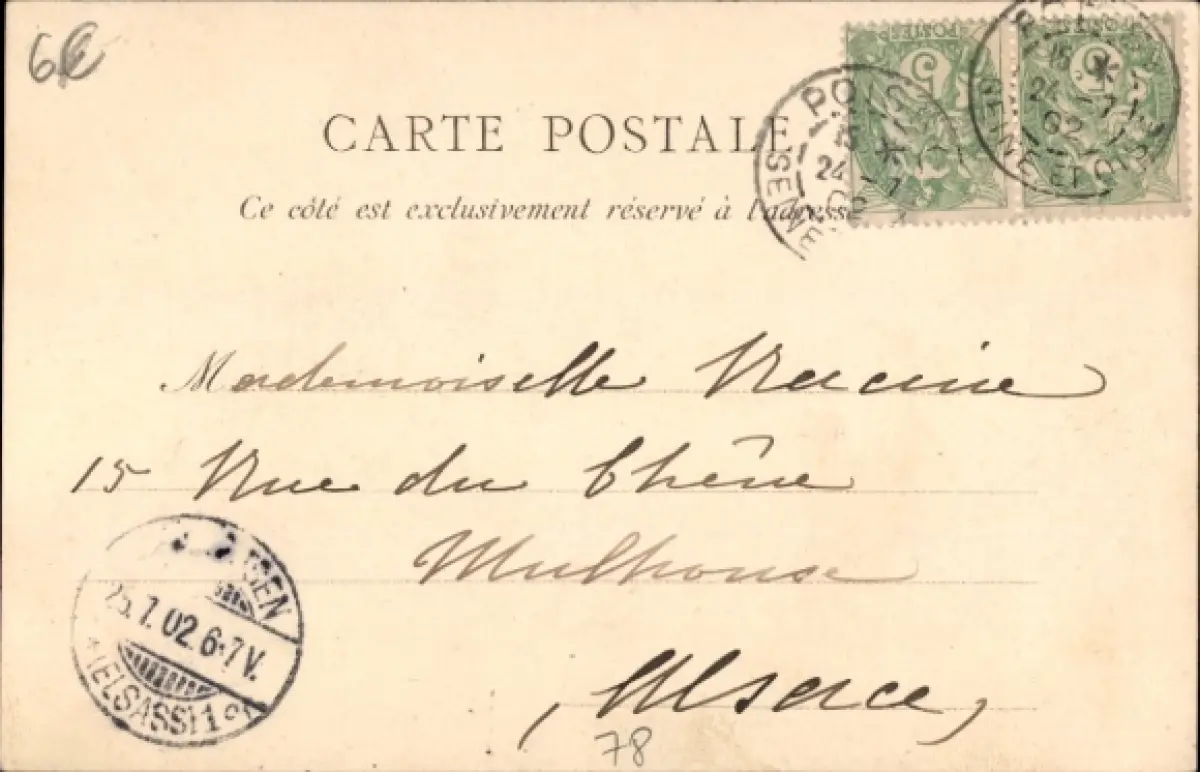 6€
POSTES
5
POSTES
5
CARTE POSTALE
Ce côté est exclusivement réservé à l'adresse
15 *
24 -7
02
SEINE
15 *
24 -7
02
SEINE ET OISE
Mademoiselle Racine
15 Rue du Chêne
Mulhouse
(Alsace)
25.7.02.6-7V.
*(ELSASS)1
78